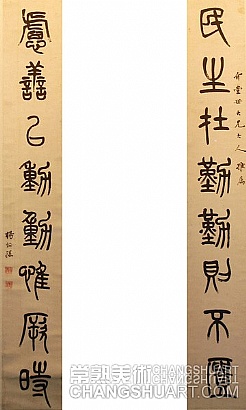 民生在勤勤则不匮
慮善以動動惟厥時
常熟美術
CHANGSHUART
CHANGSHUART.COM